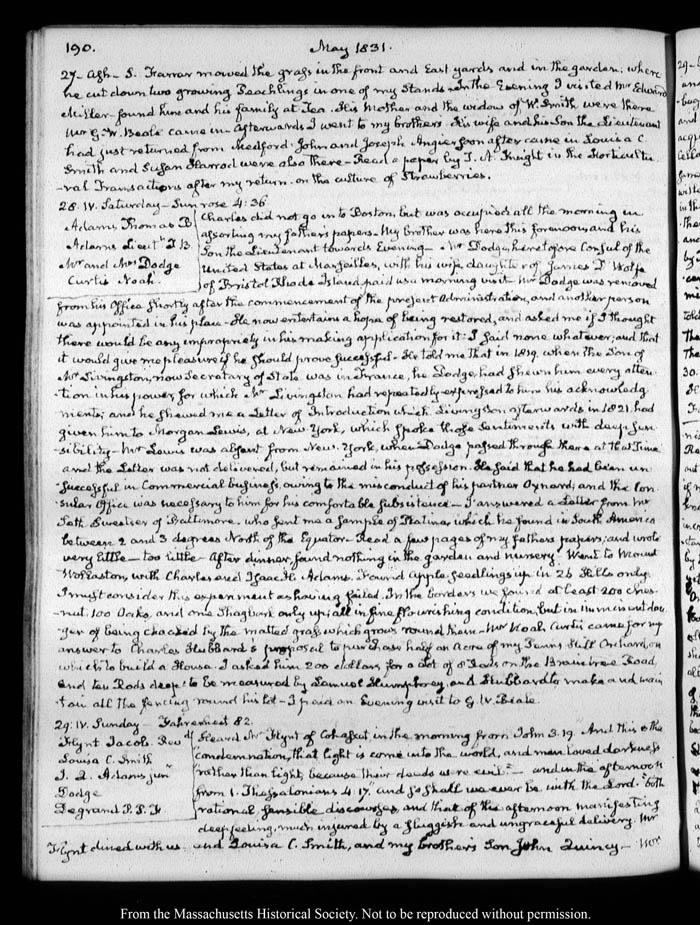 190.
May 1831.
27. Ash. S. Farrar mowed the grass in the front and East yards and in the garden; where
he cut down two growing Peachlings in one of my Stands. In the Evening I visited Mr Edward
Miller found him and his family at Tea. His Mother and the widow of W. Smith, were there
Mr G. W. Beale came in. Afterwards I went to my brothers. His wife and his Son the Lieutenant
had just returned from Medford. John and Joseph Angier soon after came in Louisa C.
Smith and Susan Harrod were also there. Read a paper by T. A. Knight in the Horticultu
-ral Transactions after my return. on the culture of Strawberries.
28. IV. Saturday. Sun rose 4:36
Adams Thomas B
Adams Lieutt T. B.
Mr and Mrs Dodge
Curtis Noah.
Charles did not go in to Boston, but was occupied all the morning in
assorting my father's papers. My brother was here this forenoon, and his
Son the Lieutenant towards Evening. Mr Dodge, heretofore Consul of the
United States at Marseilles, with his wife, daughter of James D' Wolfe
of Bristol Rhode Island, paid us a morning visit. Mr Dodge was removed
from his Office shortly after the commencement of the present Administration, and another person
was appointed in his place. He now entertains a hope of being restored, and asked me if I thought
there would be any impropriety in his making application for it. I said none whatever; and that
it would give me pleasure if he should prove successful. He told me that in 1819. when the Son of
Mr Livingston, now Secretary of State was in France, he Dodge, had shewn him every atten
-tion in his power, for which Mr Livingston had repeatedly expressed to him his acknowledg
-ments; and he shewed me a Letter of Introduction which Livingston afterwards in 1821. had
given him to Morgan Lewis, at New York, which spoke those Sentiments with deep sen
-sibility. Mr Lewis was absent from New York, when Dodge passed through there at that Time
and the Letter was not delivered, but remained in his possession. He said that he had been un
-successful in Commercial business, owing to the misconduct of his partner Oxnard; and the Con
-sular Office was necessary to him for his comfortable subsistence. I answered a Letter from Mr
Seth Sweetser of Baltimore, who sent me a sample of Platina, which he found in South America
between 2 and 3 degrees North of the Equator. Read a few pages of my fathers papers; and wrote
very little — too little. After dinner, found nothing in the garden and nursery. Went to Mount
Wollaston, with Charles and Isaac H. Adams. Found apple seedlings up in 26 Hills only.
I must consider this experiment as having failed. In the borders we found at least 200 Ches
-nut, 100 Oaks, and one Shagbark only up; all in fine flourishing condition, but in imminent dan
-ger of being choacked by the matted grass which grows round them. Mr Noah Curtis came for my
answer to Charles Hubbard's proposal to purchase half an Acre of my Penns Hill Orchard, on
which to build a House. I asked him 200 dollars for a lot of 8 Rods on the Braintree Road,
and ten Rods deep: to be measured by Lemuel Humphrey, and Hubbard to make and main
-tain all the fencing round his lot. I paid an Evening visit to G. W. Beale.
29. IV. Sunday. Fahrenheit 82.
Flynt Jacob. Revd
Louisa C. Smith
J. Q. Adams junr
Dodge
Degrand P. P. F
Heard Mr Flynt of Cohasset, in the morning from John 3. 19. And this is the
"condemnation, that light is come into the world, and men loved darkness
"rather than light, because their deeds were evil" — and in the afternoon
from 1. Thessalonians 4. 17. and so shall we ever be with the Lord. both
rational, sensible discourses, and that of the afternoon manifesting
deep feeling, much injured by a sluggish and ungraceful delivery. Mr
Flynt dined with us and Louisa C. Smith, and my brothers Son John Quincy — Mr
From the Massachusetts Historical Society. Not to be reproduced without permission.